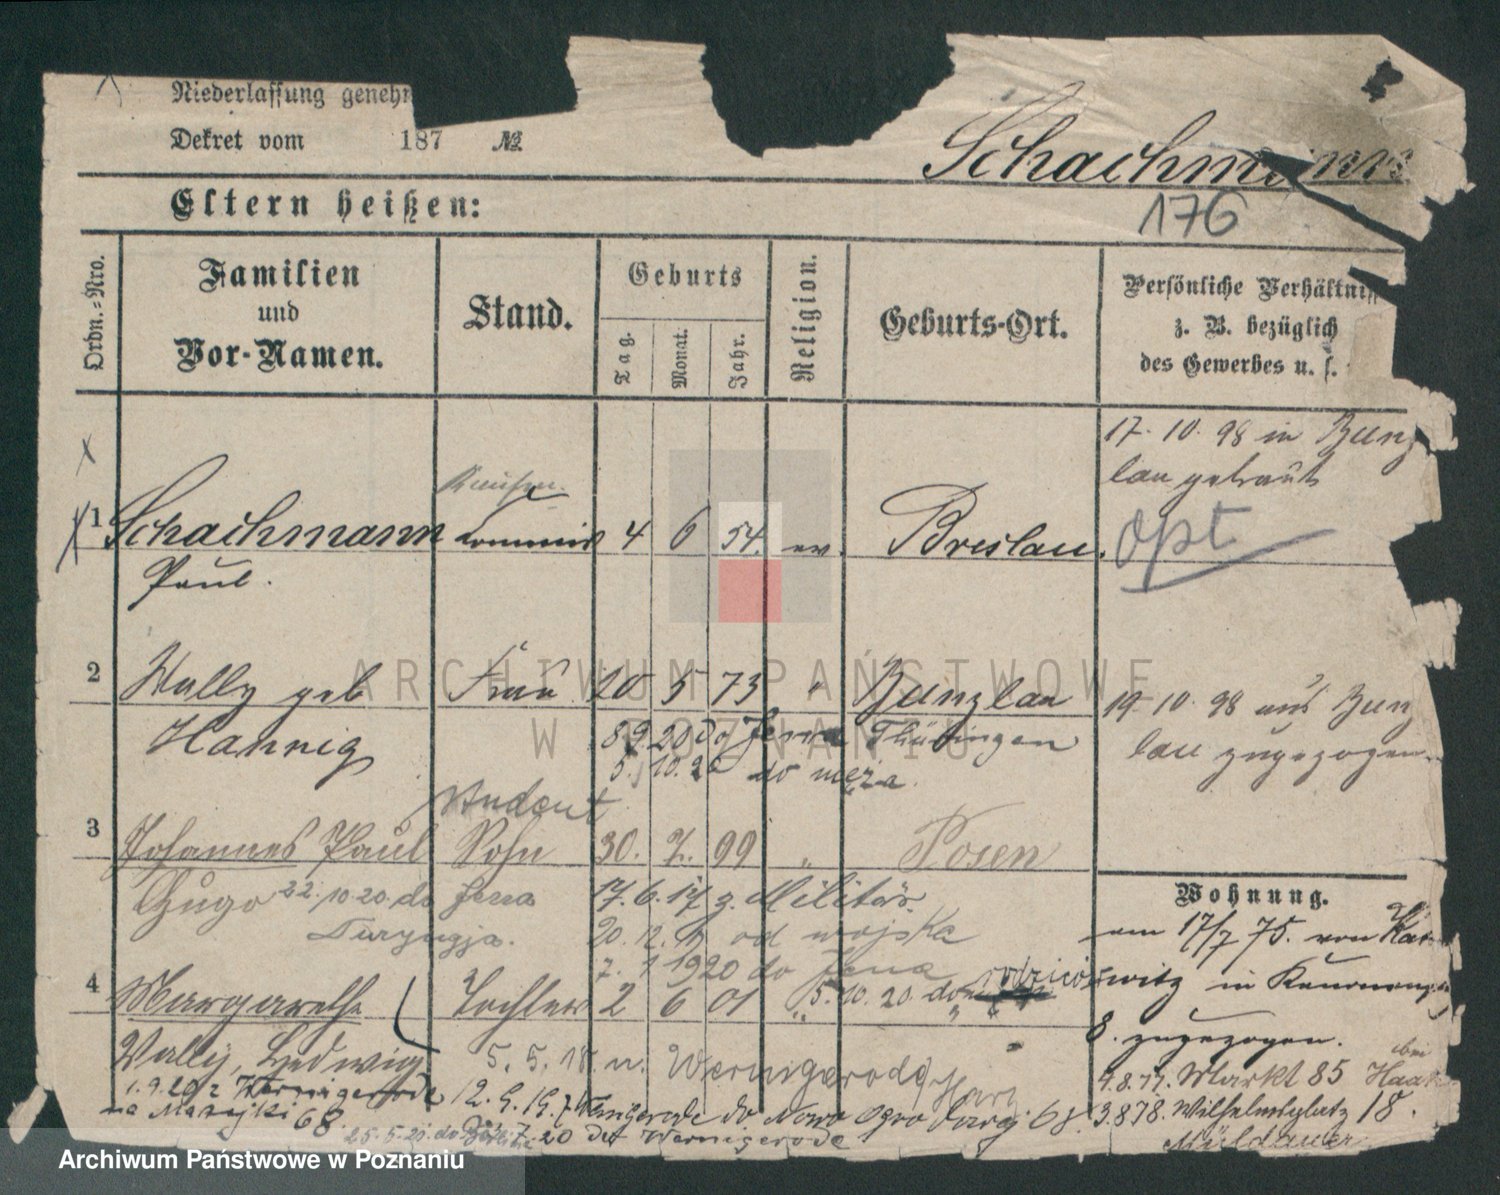 Niederlassung geneh
Dekret vom 187 №
Schachmann
176
Eltern heißen:
Ordn.-Nro.
Familien und Vor-Namen.
Stand.
Geburts
Tag.
Monat.
Jahr.
Religion.
Geburts-Ort.
Persönliche Verhältniss
z. B. bezüglich
des Gewerbes u. s.
17. 10. 98 in Bunz
lau getraut
1 Schachmann Commis 4 6 54. ev. Breslau.
Paul.
Opt
2 Wally geb Frau 20 5 73 " Bunzlau
Hannig
8 9. 20 do Jena Thüringen
5. 10. 20 do męża.
19. 10. 98 aus Bunz
lau zugezogen.
Student
3 Johannes Paul Sohn 30. 7. 99 " Posen
Hugo 22. 10. 20. do Jena
Turyngja.
17. 6. 17 z. Militär.
20. 12. 18 od wojska
7. 1 1920 do Jena
4 Margarethe Tochter 2 6 01 "
5. 10. 20. do rodziców
Wally, Ludwig
5. 5. 18. n. Wernigerode/Harz
1. 9. 20 z Wernigerode
12. 9. 19. z Wernigerode do Nowo Ogrodowej 61.
na Matejki 68.
25. 5. 20. do
7. 20 do Wernigerode
Wohnung.
am 17/7 75. von Kat
witz in
8. zugezogen.
4. 8. 77. Markt 85 bei Haa
3. 8 78. Wilhelmsplatz 18.
ARCHIWUM PAŃSTWOWE
W POZNANIU
Archiwum Państwowe w Poznaniu